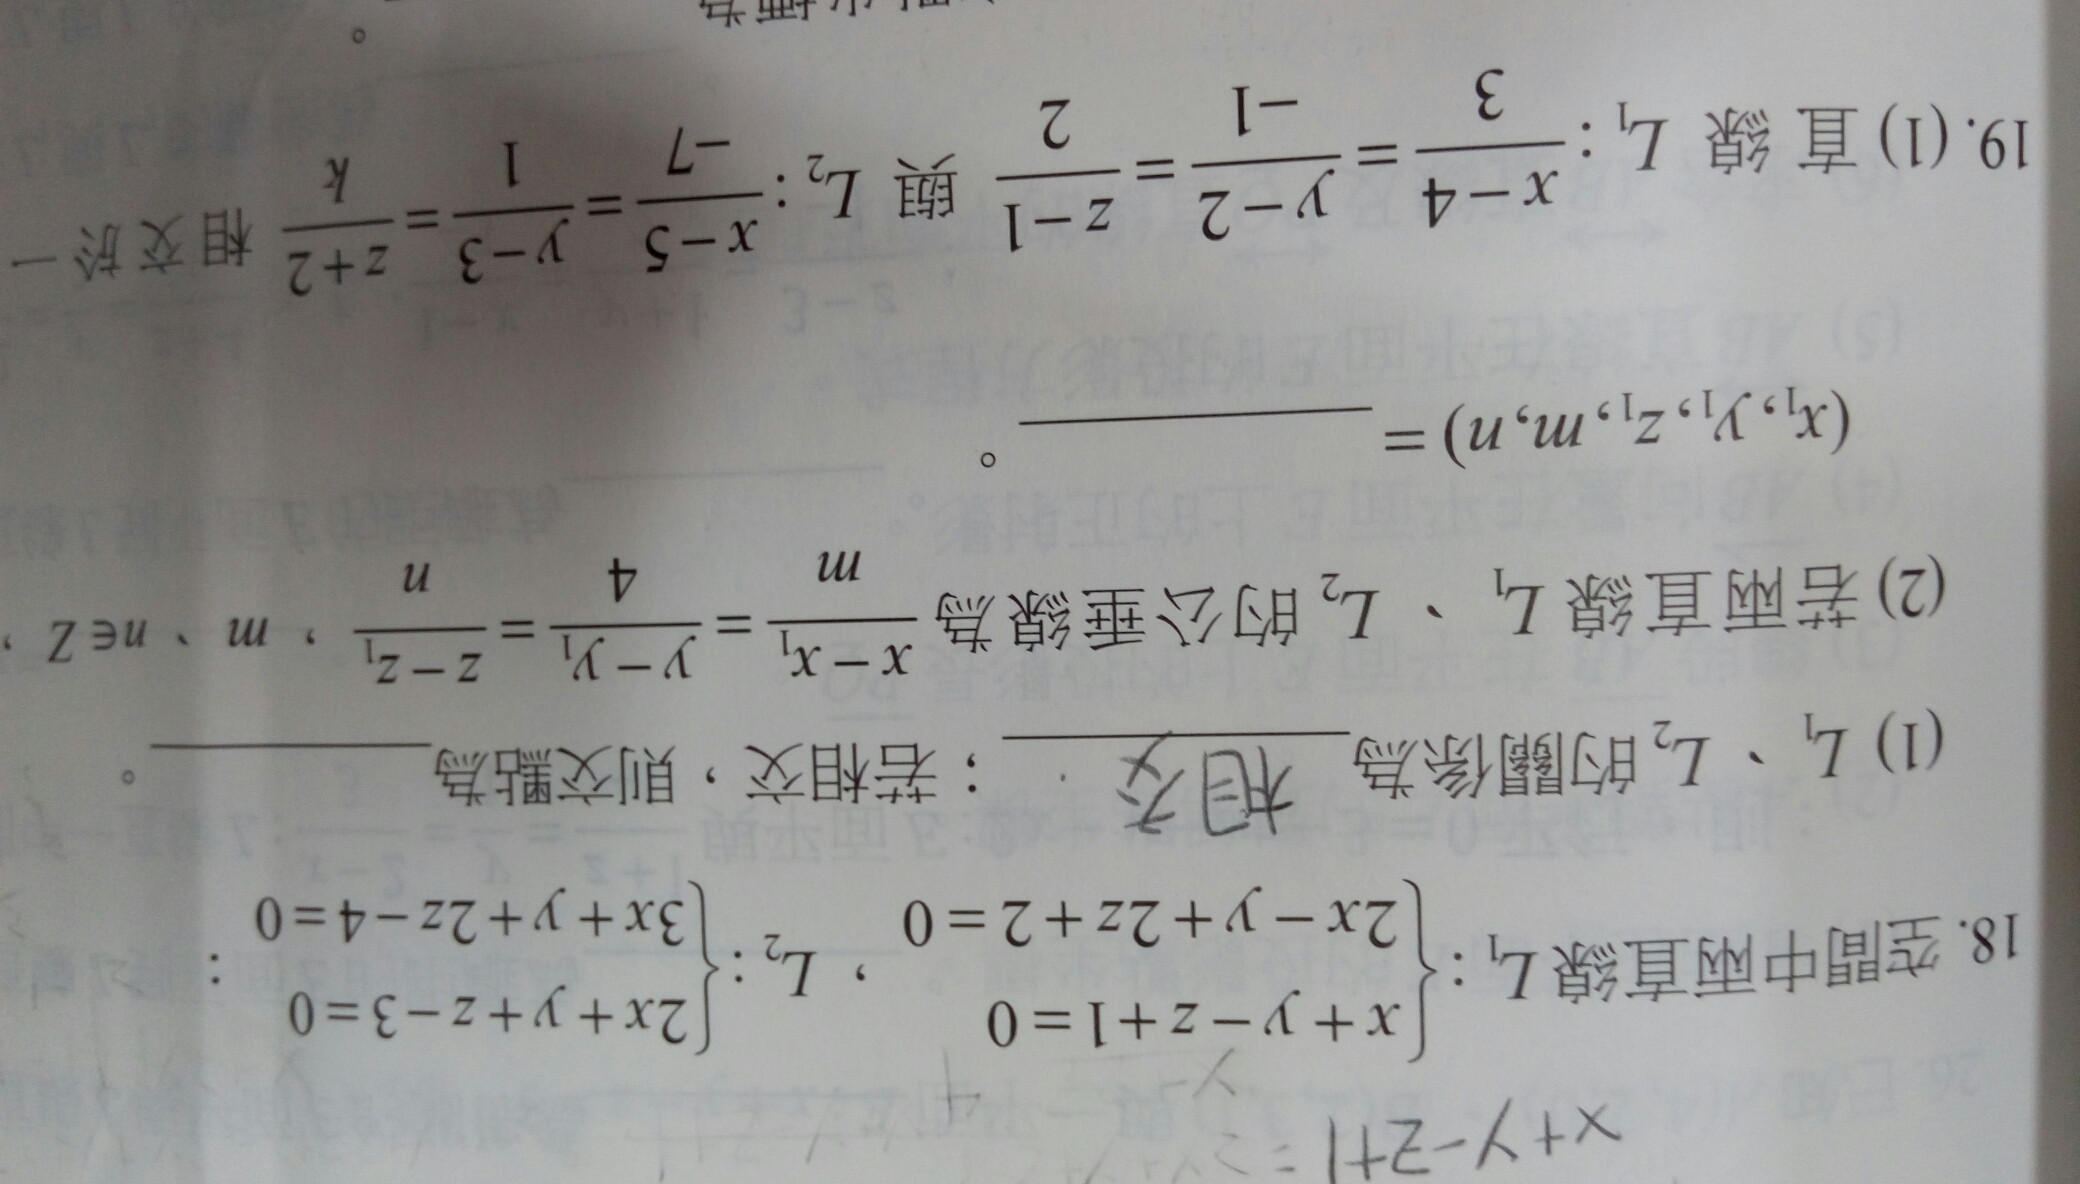 x+y-z+1=
18. 空間中兩直線 L₁：{x+y-z+1=0, 2x-y+2z+2=0，L₂：{2x+y+z-3=0, 3x+y+2z-4=0：
(1) L₁、L₂的關係為 相交 ；若相交，則交點為________。
(2) 若兩直線 L₁、L₂的公垂線為 (x-x₁)/m = (y-y₁)/4 = (z-z₁)/n，m、n∈Z，
(x₁, y₁, z₁, m, n) = ________。
19. (1) 直線 L₁：(x-4)/3 = (y-2)/-1 = (z-1)/2 與 L₂：(x-5)/-7 = (y-3)/1 = (z+2)/k 相交於一